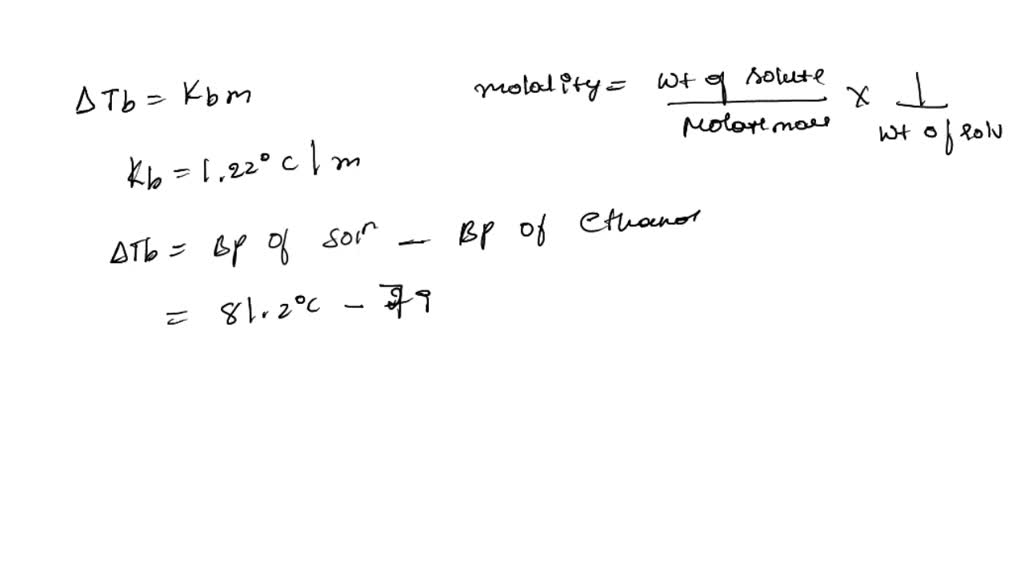 ΔTb = Kbm
molality = wt of solute / Molar mass × 1 / wt of solv
Kb = 1.22°C/m
ΔTb = BP of soln – BP of ethanol
= 81.2°C – 79